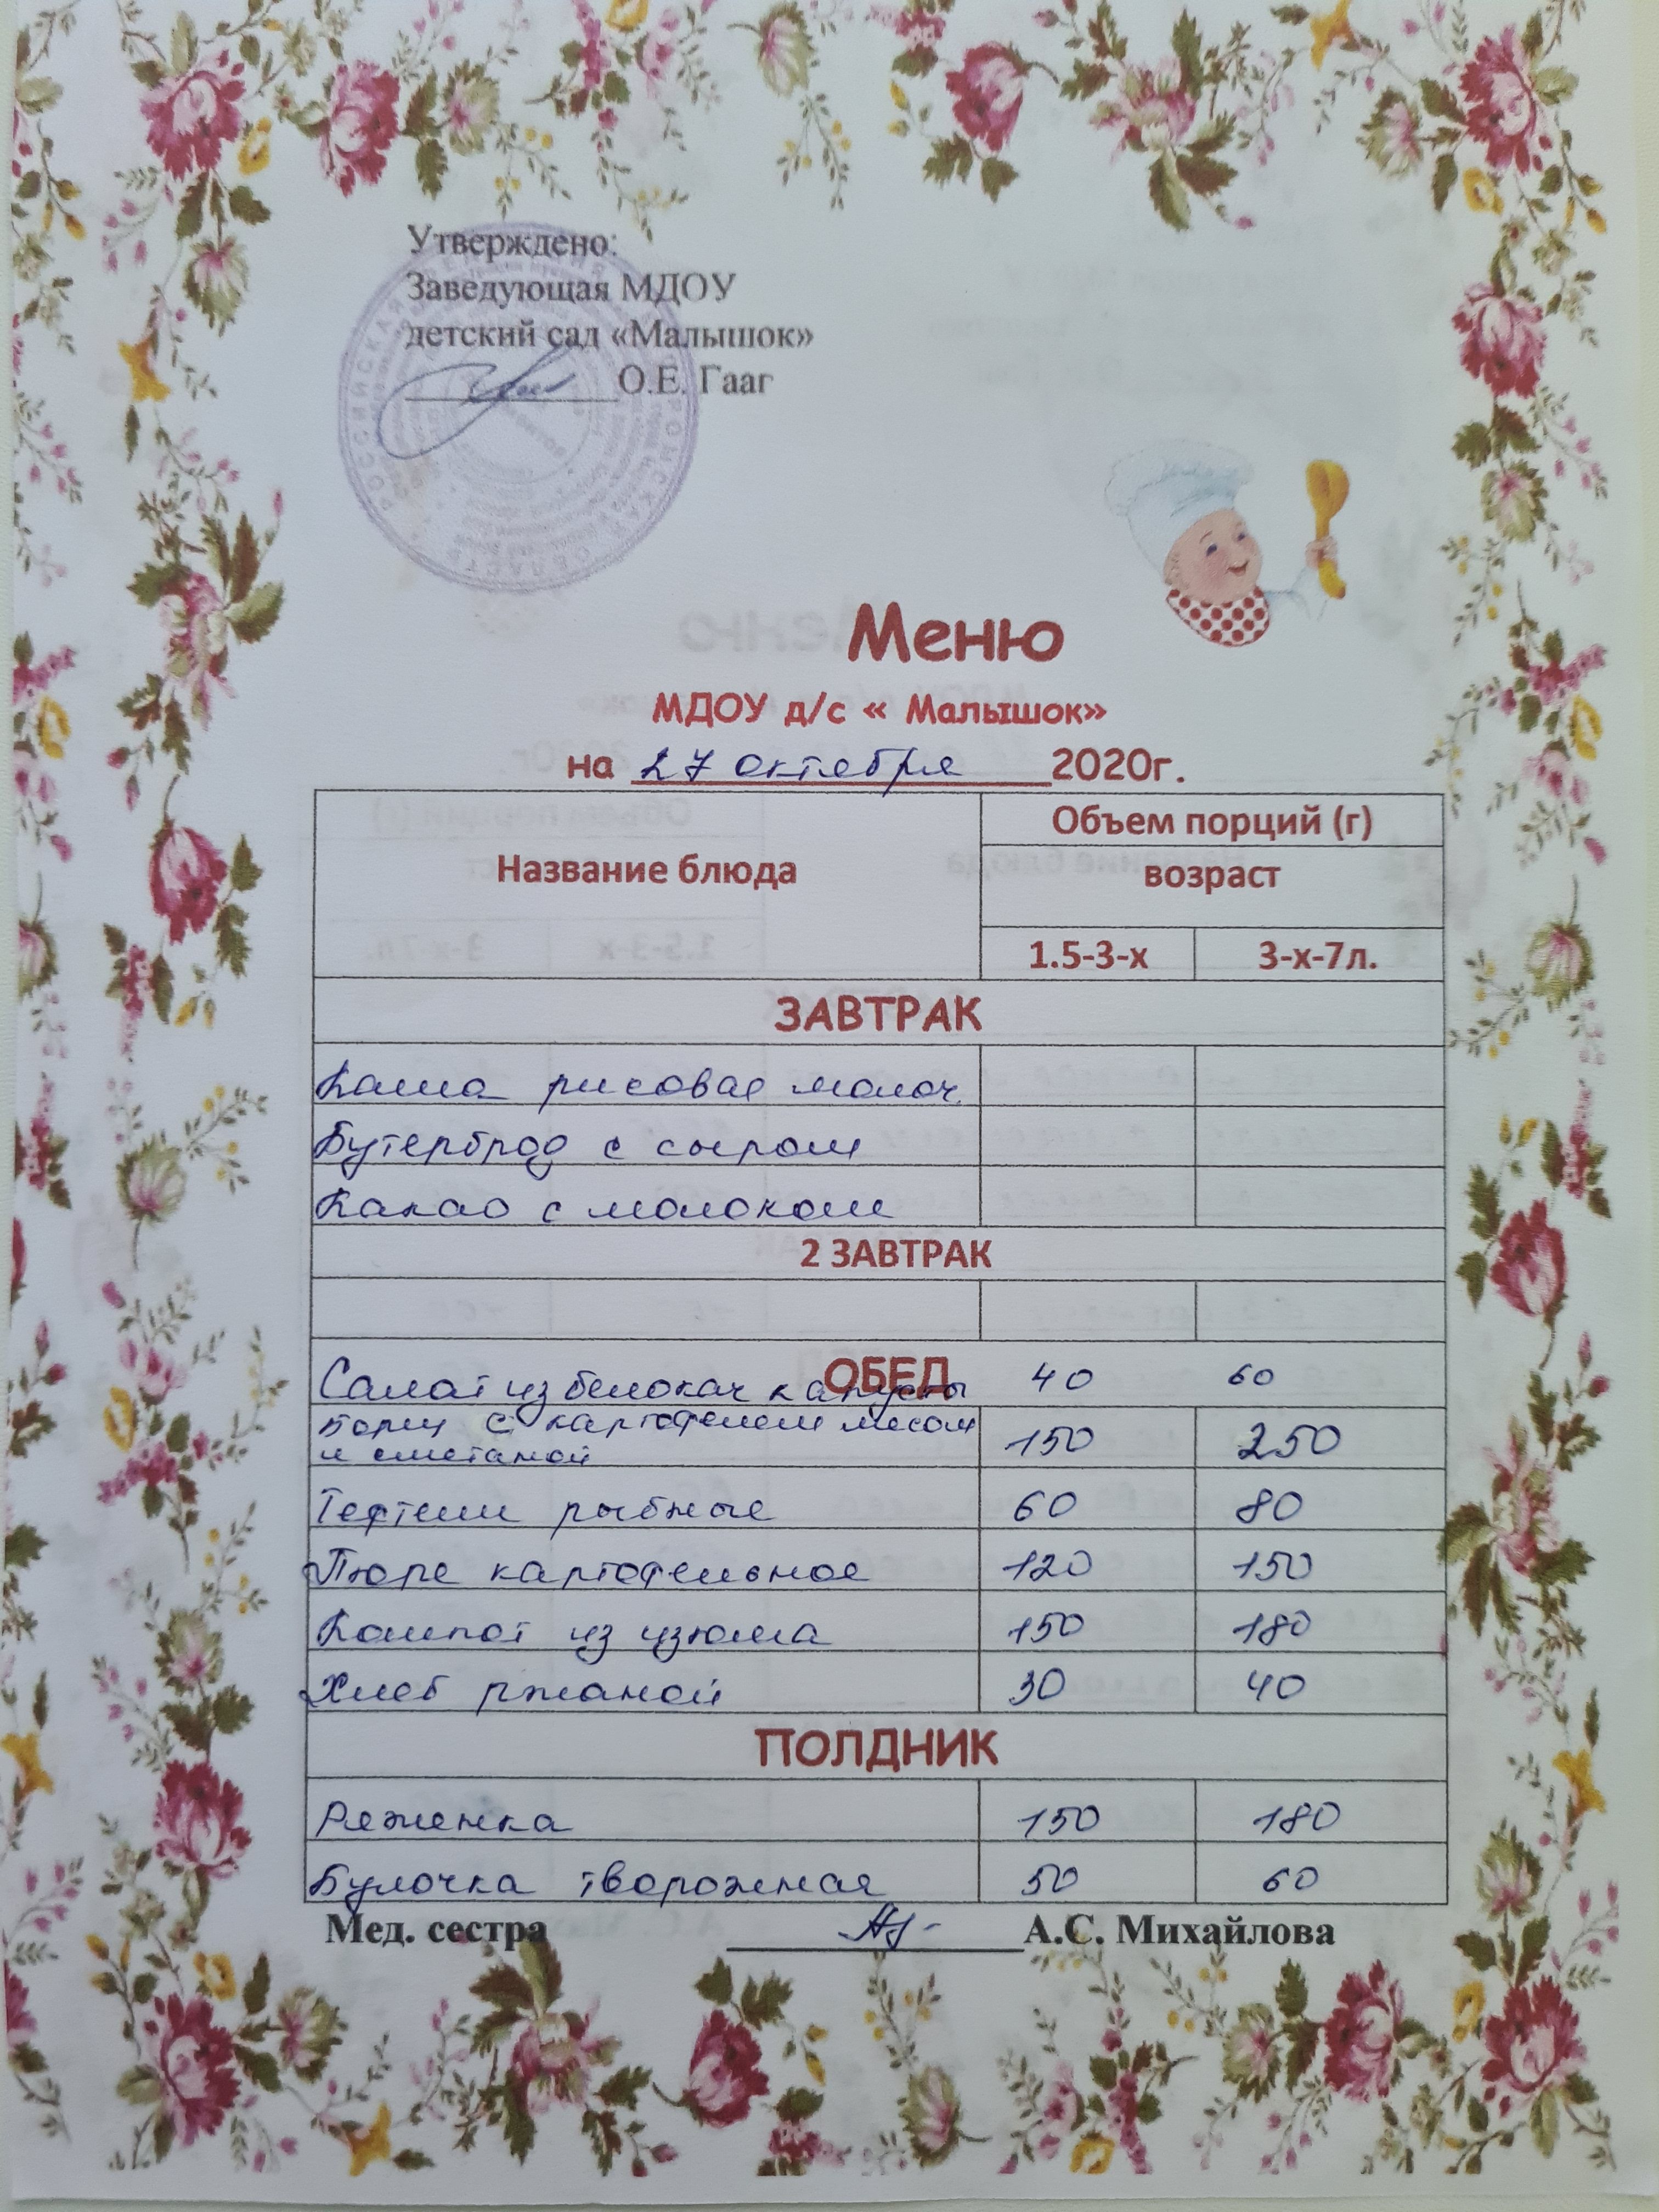 Утверждено:
Заведующая МДОУ
детский сад «Малышок»
О.Е. Гааг
РОССИЙСКАЯ
КОСТРОМСКАЯ ОБЛАСТЬ
Меню
МДОУ д/с « Малышок»
на 27 октября 2020г.
Название блюда Объем порций (г)
возраст
1.5-3-х 3-х-7л.
ЗАВТРАК
Каша рисовая молоч.
Бутерброд с сыром
Какао с молоком
2 ЗАВТРАК
ОБЕД
Салат из белокач капусты 40 60
Борщ с картофелем мясом
и сметаной 150 250
Тефтели рыбные 60 80
Пюре картофельное 120 150
Компот из изюма 150 180
Хлеб ржаной 30 40
ПОЛДНИК
Ряженка 150 180
Булочка творожная 50 60
Мед. сестра А.С. Михайлова